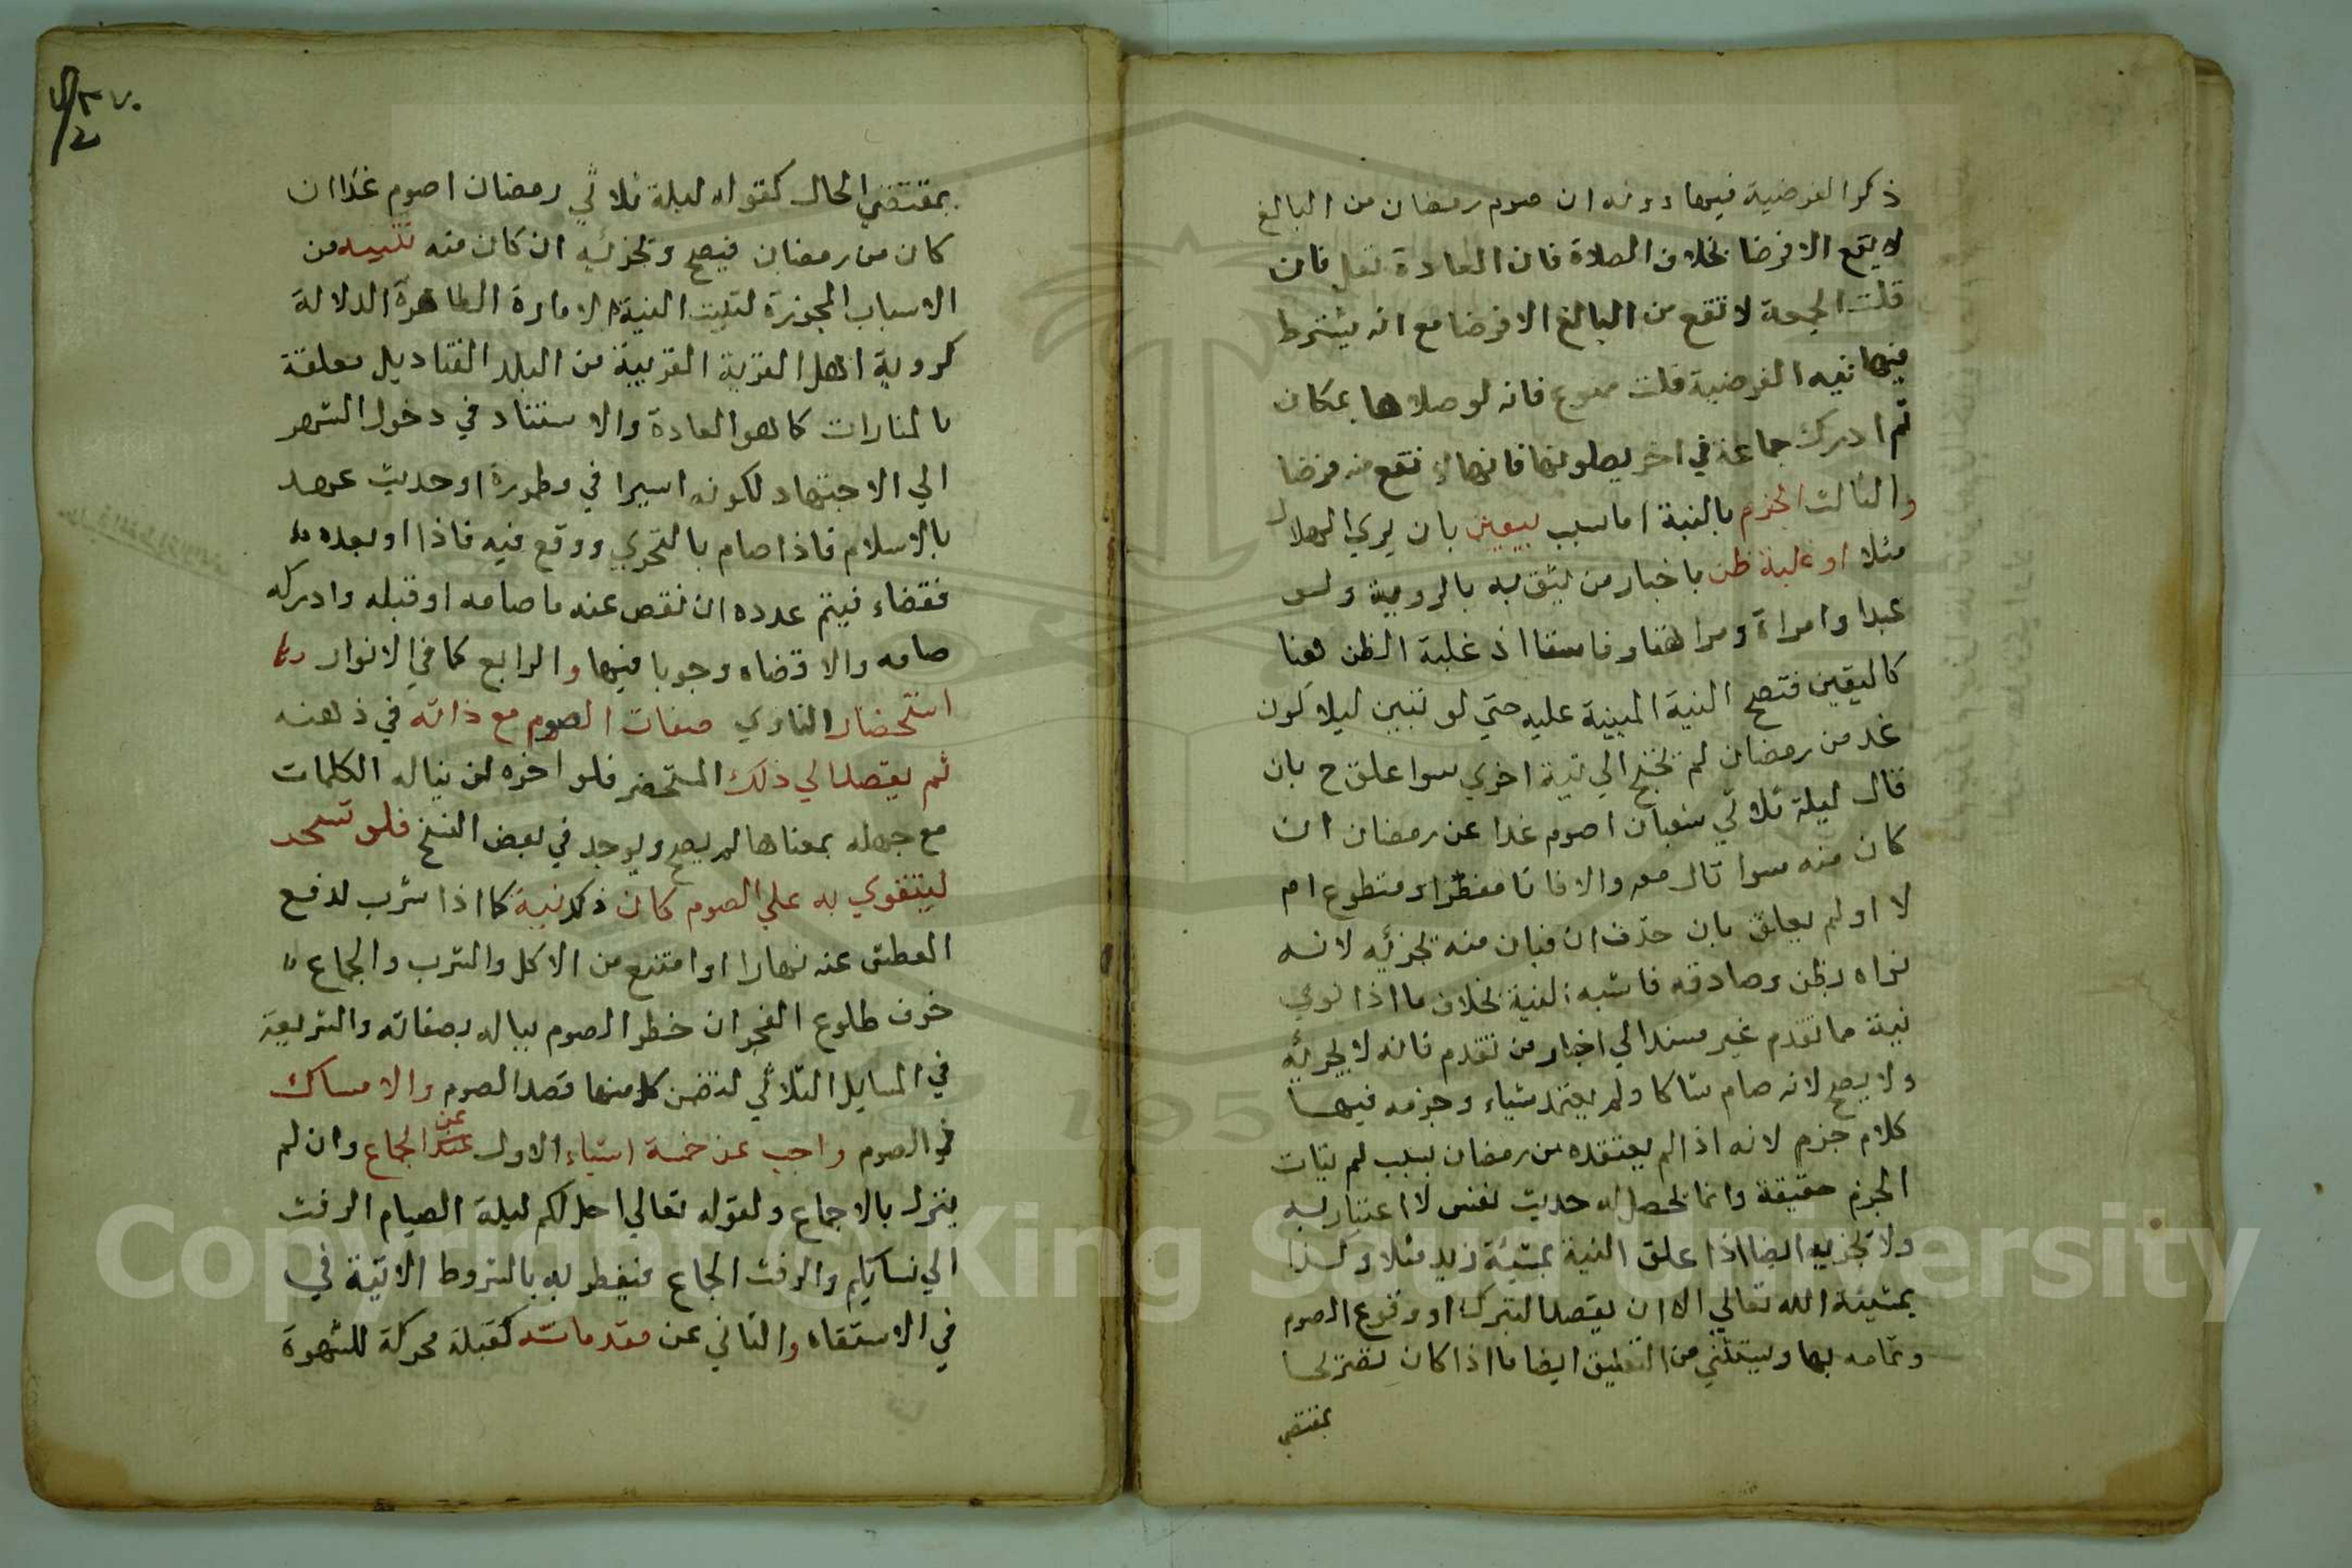 ذكر الفرضية فيها دونه ان صوم رمضان من البالغ
لا يقع الا فرضا بخلاف الصلاة فان المعادة نفل فان
قلت الجمعة لا تقع من البالغ الا فرضا مع انه يشترط
فيها نية الفرضية قلت ممنوع فانه لو صلاها بمكان
ثم ادرك جماعة في اخر يصلونها فانها لا تقع منه فرضا
والثالث الجزم بالنية اما بسبب بيقين بان يري الهلال
مثلا او غلبة ظن باخبار من يثق به بالروية ولو
عبدا وامراة ومراهقا وفاسقا اذ غلبة الظن هنا
كاليقين فتصح النية المبنية عليه حتي لو تبين ليلا كون
غد من رمضان لم تحتج الي نية اخري سوا علق ح بان
قال ليلة ثلاثي شعبان اصوم غدا عن رمضان ان
كان منه سوا قال معه والا فانا مفطر او متطوع ام
لا او لم يعلق بان حذف ان فبان منه تجزئه لانه
نواه بظن وصادفه فاشبه البينة بخلاف ما اذا نوي
نية ما تقدم غير مستند الي اخبار من تقدم فانه لا يجزئه
ولا يصح لانه صام شاكا ولم يعتمد شياء وجزمه فيها
كلام جزم لانه اذا لم يعتقده من رمضان بسبب لم يتات
الجزم حقيقة وانما يحصل له حديث نفس لا اعتبار به
ولا تجزيه ايضا اذا علق النية بمشيئة زيد مثلا وكذا
بمشيئة الله تعالي الا ان يقصد التبرك او وقوع الصوم
وتمامه بها ويستثني من التعليق ايضا ما اذا كان تصريحا
بمقتضي
٧٠
بمقتضي الحال كقوله ليلة ثلاثي رمضان اصوم غدا ان
كان من رمضان فيصح وتجزئيه ان كان منه تنبيه من
الاسباب المجوزة لتبييت النية الامارة الظاهرة الدلالة
كروية اهل القرية القريبة من البلد القناديل معلقة
بالمنارات كما هو العادة والاستناد في دخول الشهر
الي الاجتهاد لكونه اسيرا في مطمورة او حديث عهد
بالاسلام فاذا صام بالتحري ووقع فيه فاذا او بعده
فقضاء فيتم عدده ان نقص عنه ما صامه او قبله وادركه
صامه والا قضاه وجوبا فيها والرابع كما في الانوار
استحضار الناوي صفات الصوم مع ذاته في ذهنه
ثم يقصد الي ذلك المستحضر فلو اخره لمن بباله الكلمات
مع جهله بمعناها لم يصح ويوجد في بعض النسخ فلو تسحر
ليتقوي به علي الصوم كان ذلك نية كما اذا شرب لدفع
العطش عنه نهارا او امتنع من الاكل والشرب والجماع
خوف طلوع الفجر ان خطر الصوم بباله بصفاته والشريعة
في المسايل الثلاثي لتضمن كل منها قصد الصوم والامساك
في الصوم واجب عن خمسة اشياء الاول عن الجماع وان لم
ينزل بالاجماع ولقوله تعالي احل لكم ليلة الصيام الرفث
الي نسايكم والرفث الجماع فيفطر به بالشروط الاتية في
في الاستقاه والثاني عن مقدماته كقبلة محركة للشهوة
Copyright © King Saud University